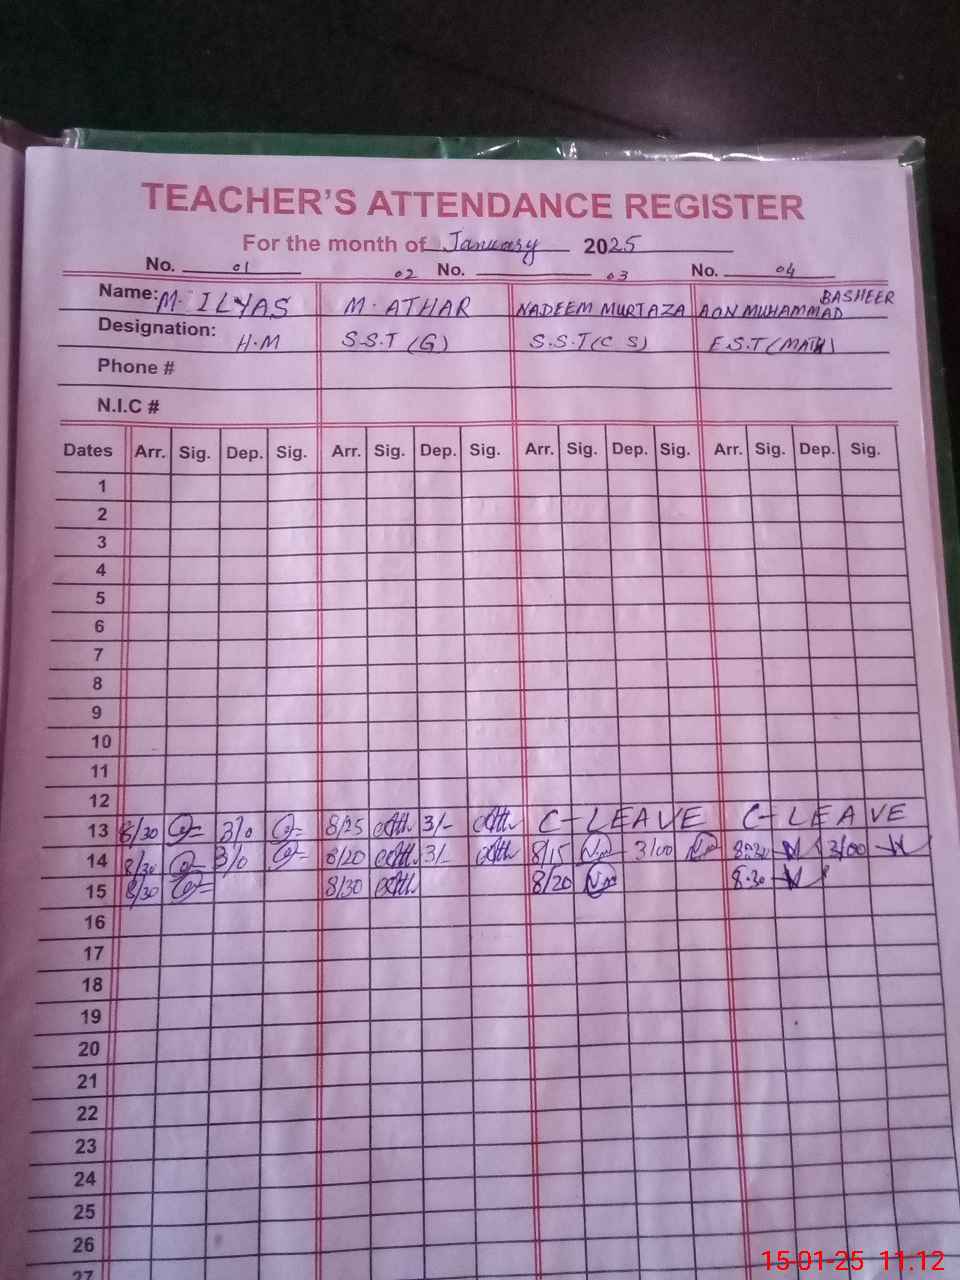 TEACHER'S ATTENDANCE REGISTER
For the month of January 2025
No. 01 02 No. 03 No. 04
Name: M. ILYAS M. ATHAR NADEEM MURTAZA AON MUHAMMAD BASHEER
Designation: H.M S.S.T (G) S.S.T (C S) E.S.T (MATH)
Phone #
N.I.C #
Dates Arr. Sig. Dep. Sig. Arr. Sig. Dep. Sig. Arr. Sig. Dep. Sig. Arr. Sig. Dep. Sig.
1
2
3
4
5
6
7
8
9
10
11
12
13 8/30 8/25 3/- C-LEAVE C-LEAVE
14 8/30 8/20 3/- 8/15 3/00 8:30 3/00
15 8/30 8/30 8/20 8.30
16
17
18
19
20
21
22
23
24
25
26
27
15-01-25 11.12